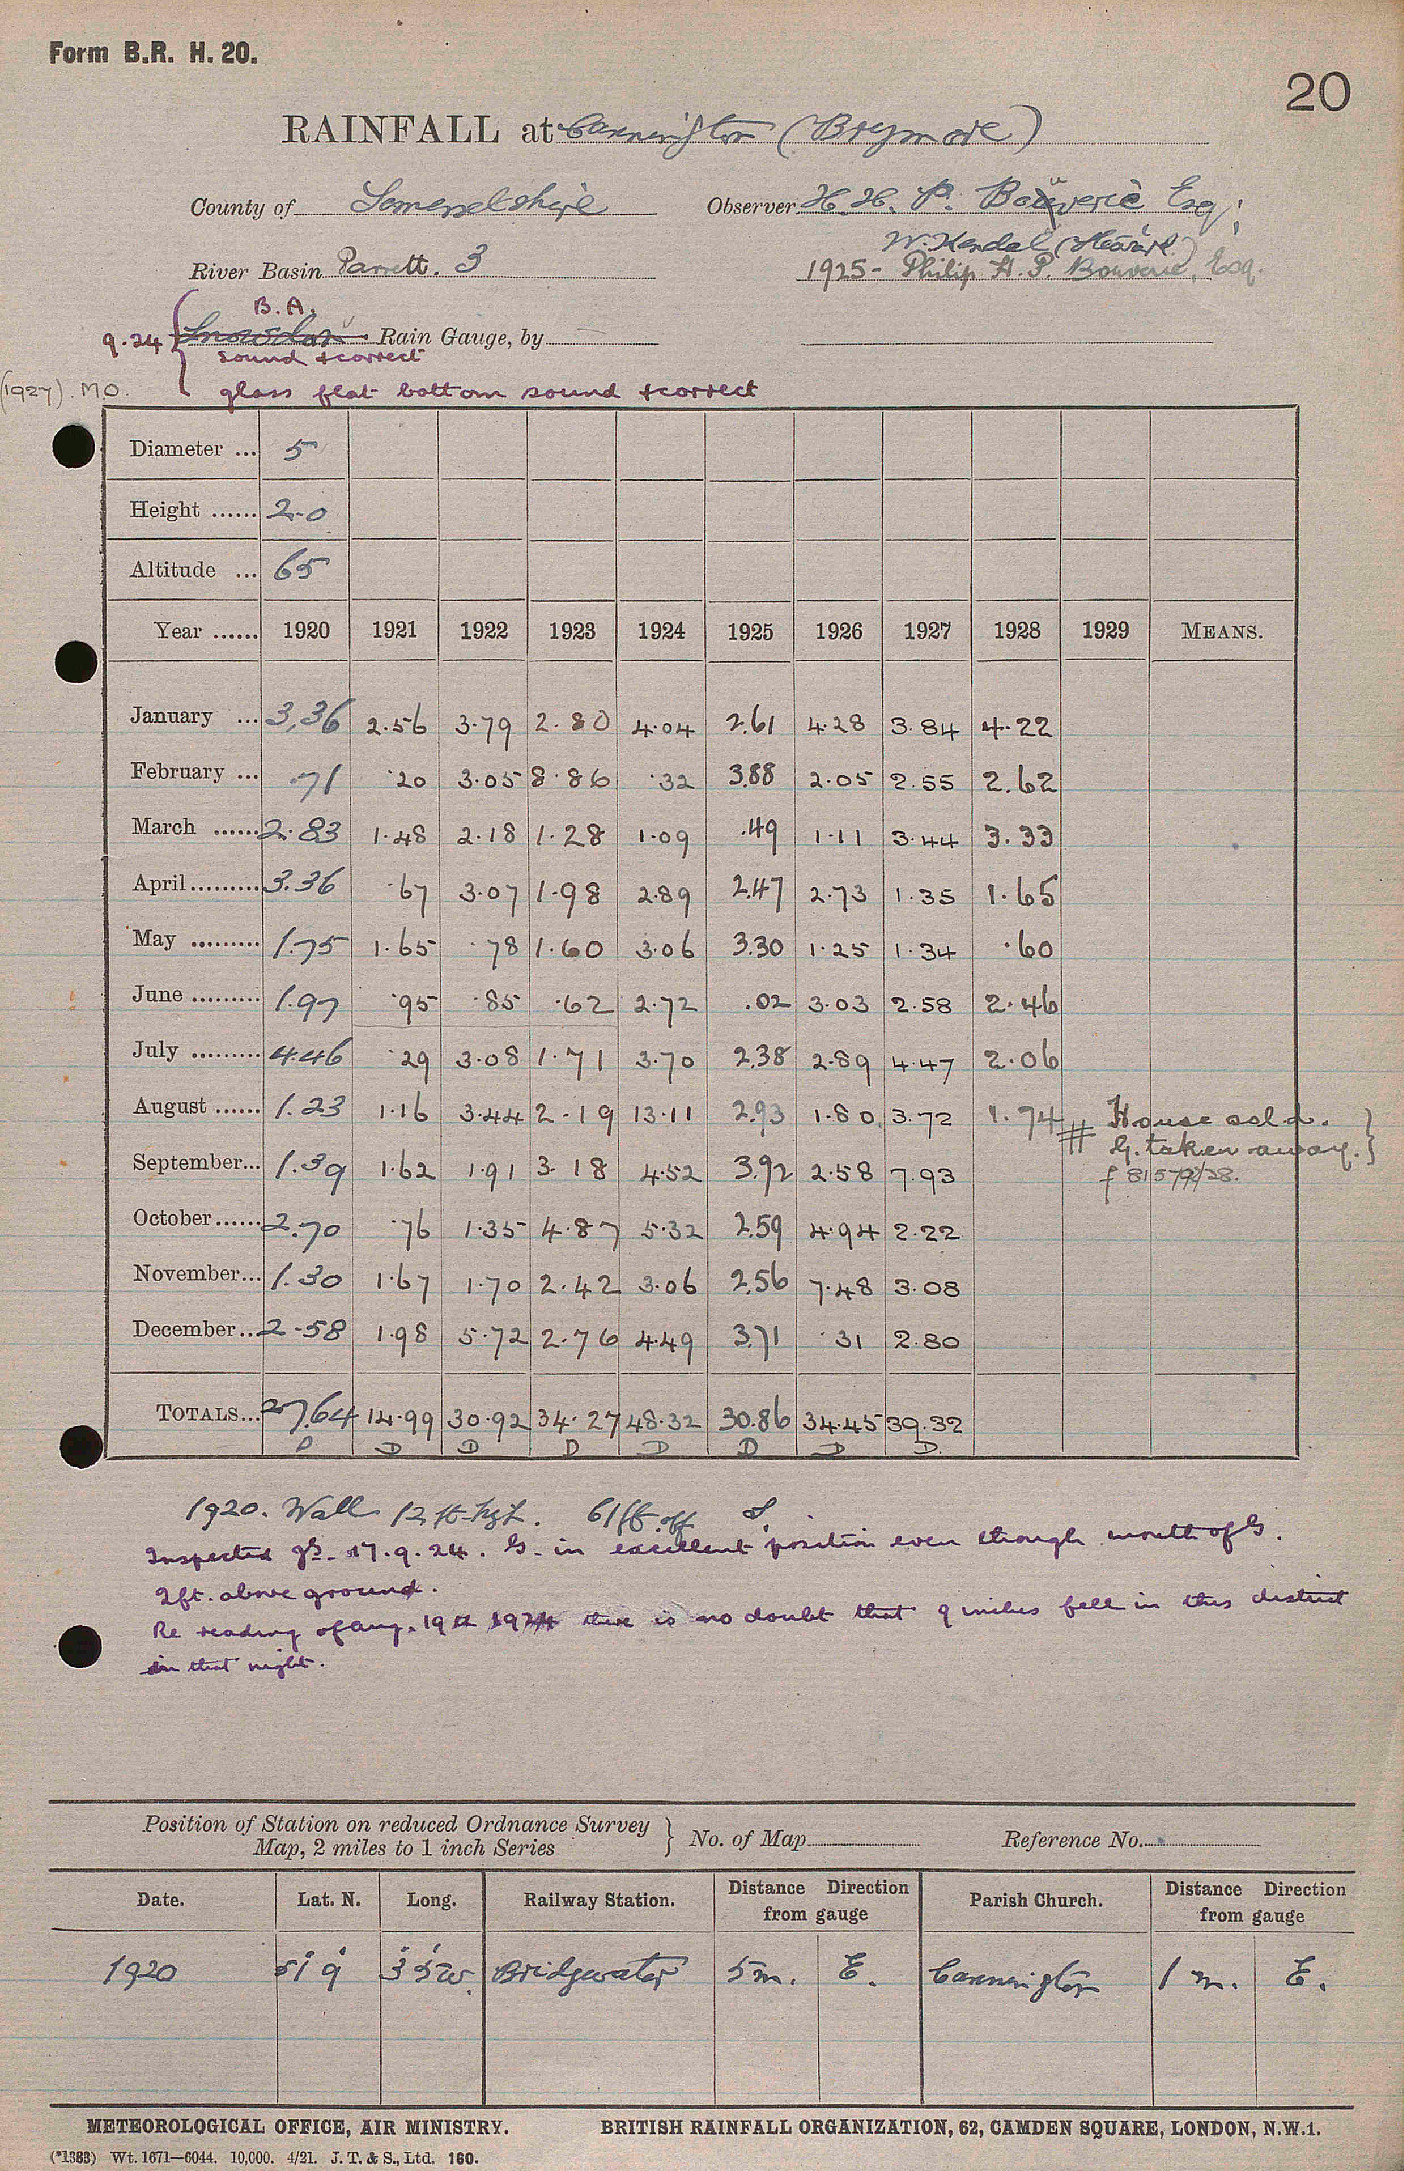 Form B.R. H. 20.
20
RAINFALL at Cannington (Brymore)
County of Somersetshire Observer H. H. P. Bouverie Esq;
W. Kendal (Heard)
River Basin Parrett. 3 1925 - Philip H. P. Bouverie, Esq.
B. A.
9.24 Snowdon Rain Gauge, by
sound & correct
(1927). MO. glass flat bottom sound & correct
Diameter ... 5
Height ...... 2-0
Altitude ... 65
Year ...... 1920 1921 1922 1923 1924 1925 1926 1927 1928 1929 MEANS.
January ... 3.36 2.56 3.79 2.80 4.04 2.61 4.28 3.84 4.22
February ... 71 .20 3.05 8.86 .32 3.88 2.05 2.55 2.62
March ...... 2.83 1.48 2.18 1.28 1.09 .49 1.11 3.44 3.33
April ......... 3.36 .67 3.07 1.98 2.89 2.47 2.73 1.35 1.65
May ......... 1.75 1.65 .78 1.60 3.06 3.30 1.25 1.34 .60
June ......... 1.97 .95 .85 .62 2.72 .02 3.03 2.58 2.46
July ......... 4.46 .29 3.08 1.71 3.70 2.38 2.89 4.47 2.06
August ...... 1.23 1.16 3.44 2.19 13.11 2.93 1.80 3.72 1.74 # House sold.
G. taken away. }
September... 1.39 1.62 1.91 3.18 4.52 3.92 2.58 7.93
October ...... 2.70 .76 1.35 4.87 5.32 2.59 4.94 2.22
November... 1.30 1.67 1.70 2.42 3.06 2.56 7.48 3.08
December... 2.58 1.98 5.72 2.76 4.49 3.71 .31 2.80
TOTALS... 27.64 14.99 30.92 34.27 48.32 30.86 34.45 39.32
D D D D D D D D
1920. Wall 12 ft hgt. 61 ft off S.
Inspected 17.9.24. G. in excellent position even though mouth of G.
2ft. above ground.
Re reading of Aug. 19th 1924 there is no doubt that 9 inches fell in this district
in that night.
Position of Station on reduced Ordnance Survey
Map, 2 miles to 1 inch Series } No. of Map Reference No.
Date. Lat. N. Long. Railway Station. Distance Direction from gauge Parish Church. Distance Direction from gauge
1920 51 9 3 5 W. Bridgwater 5 m. E. Cannington 1 m. E.
METEOROLOGICAL OFFICE, AIR MINISTRY. BRITISH RAINFALL ORGANIZATION, 62, CAMDEN SQUARE, LONDON, N.W.1.
(*1383) Wt. 1671—6044. 10,000. 4/21. J. T. & S., Ltd. 160.